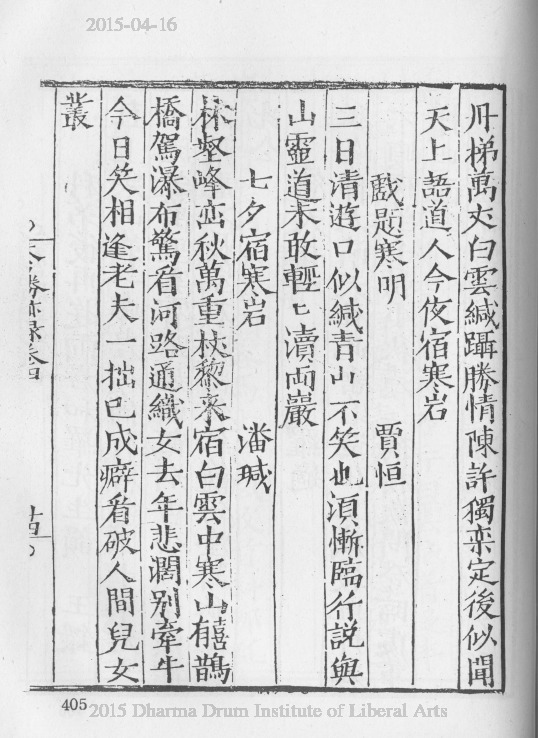 2015-04-16
丹梯萬丈白雲緘躡勝情陳許獨乘定後似聞
天上語道人今夜宿寒岩
戲題寒明 賈恒
三日清遊口似緘青山不笑也須慚臨行説與
山靈道未敢輕匕瀆両巖
七夕宿寒岩 潘瑊
林壑峰巒秋萬重杖藜來宿白雲中寒山有鵲
橋駕瀑布驚看河路通織女去年悲濶别牽牛
今日笑相逢老夫一拙已成癖看破人間兒女
叢
天台勝跡録卷四 十四
405
2015 Dharma Drum Institute of Liberal Arts